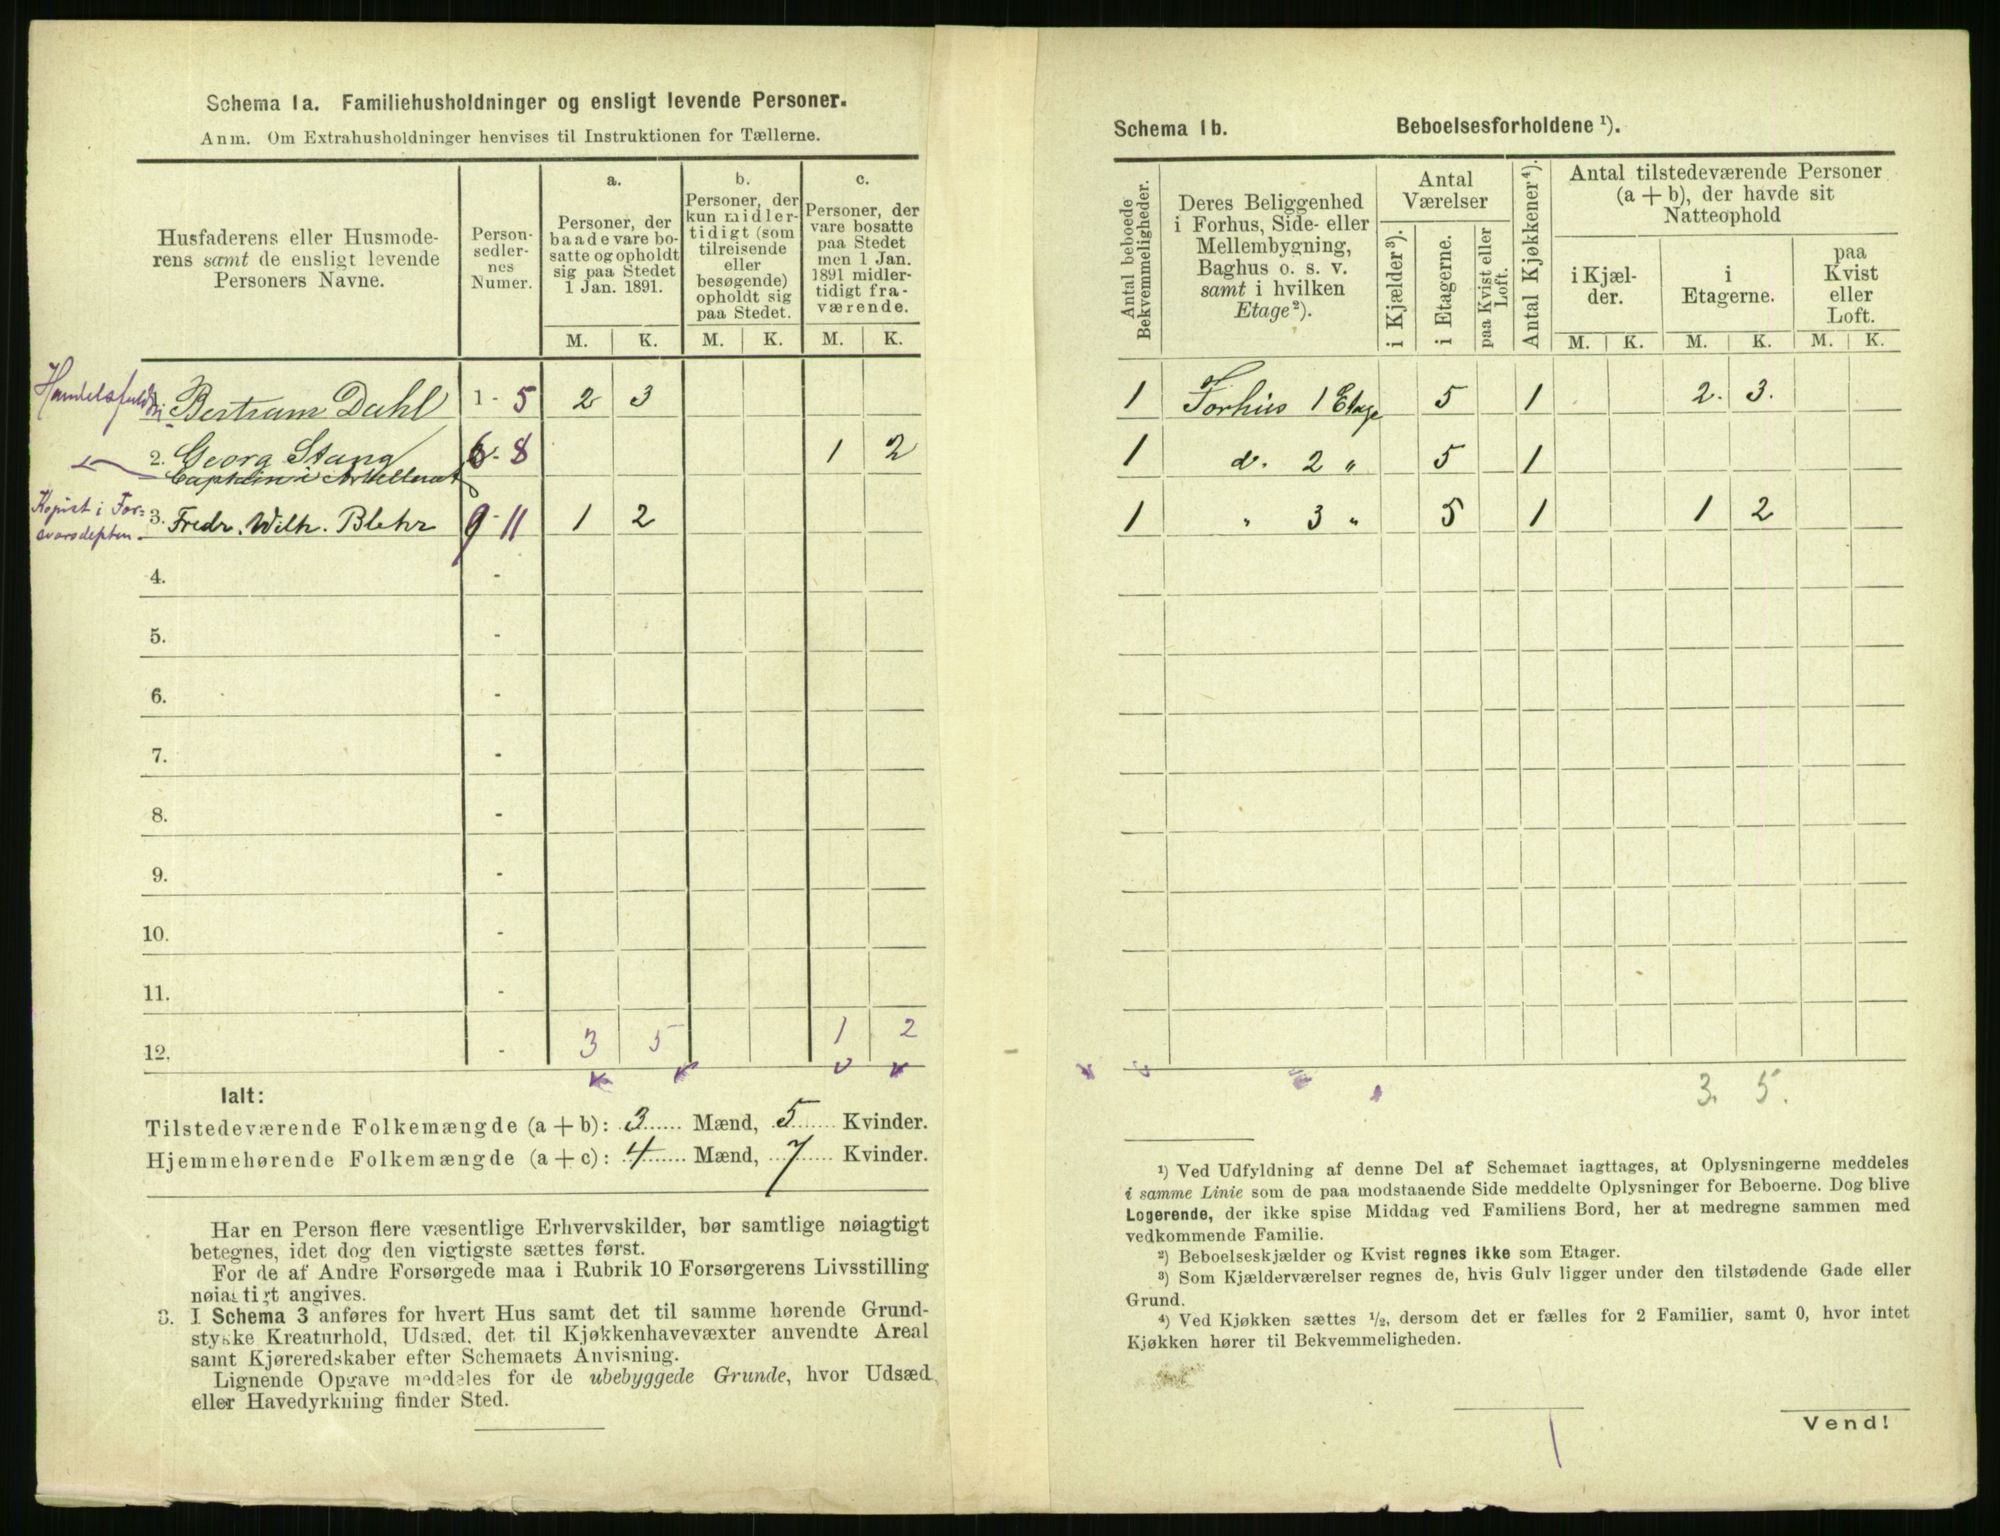 Schema 1a. Familiehusholdninger og ensligt levende Personer.
Anm. Om Extrahusholdninger henvises til Instruktionen for Tællerne.
Husfaderens eller Husmode-
rens samt de ensligt levende
Personers Navne.
Person-
sedler-
nes
Numer.
a.
Personer, der
baade vare bo-
satte og opholdt
sig paa Stedet
1 Jan. 1891.
b.
Personer, der
kun midler-
tidigt (som
tilreisende
eller
besøgende)
opholdt sig
paa Stedet.
c.
Personer, der
vare bosatte
paa Stedet
men 1 Jan.
1891 midler-
tidigt fra-
værende.
M. K. M. K. M. K.
1. Bertram Dahl 1 - 5 2 3
2. Georg Stang 6 - 8 1 2
Captain i Artilleriet
Kopist i For-
svarsdepten.
3. Fredr. Wilh. Blehr 9 - 11 1 2
4. -
5. -
6. -
7. -
8. -
9. -
10. -
11. -
12. - 3 5 1 2
Ialt:
Tilstedeværende Folkemængde (a + b): 3 Mænd, 5 Kvinder.
Hjemmehørende Folkemængde (a + c): 4 Mænd, 7 Kvinder.
Har en Person flere væsentlige Erhvervskilder, bør samtlige nøiagtigt
betegnes, idet dog den vigtigste sættes først.
For de af Andre Forsørgede maa i Rubrik 10 Forsørgerens Livsstilling
nøiagtigt angives.
3. I Schema 3 anføres for hvert Hus samt det til samme hørende Grund-
stykke Kreaturhold, Udsæd, det til Kjøkkenhavevæxter anvendte Areal
samt Kjøreredskaber efter Schemaets Anvisning.
Lignende Opgave meddeles for de ubebyggede Grunde, hvor Udsæd
eller Havedyrkning finder Sted.
Schema 1b. Beboelsesforholdene ¹).
Antal beboede
Bekvemmeligheder.
Deres Beliggenhed
i Forhus, Side- eller
Mellembygning,
Baghus o. s. v.
samt i hvilken
Etage²).
Antal
Værelser
i Kjælder³).
i Etagerne.
paa Kvist eller
Loft.
Antal Kjøkkener⁴).
Antal tilstedeværende Personer
(a + b), der havde sit
Natteophold
i Kjæl-
der.
i
Etagerne.
paa
Kvist
eller
Loft.
M. K. M. K. M. K.
1 Forhus 1 Etage 5 1 2. 3.
1 d. 2 " 5 1
1 " 3 " 5 1 1 2
3. 5.
¹) Ved Udfyldning af denne Del af Schemaet iagttages, at Oplysningerne meddeles
i samme Linie som de paa modstaaende Side meddelte Oplysninger for Beboerne. Dog blive
Logerende, der ikke spise Middag ved Familiens Bord, her at medregne sammen med
vedkommende Familie.
²) Beboelseskjælder og Kvist regnes ikke som Etager.
³) Som Kjælderværelser regnes de, hvis Gulv ligger under den tilstødende Gade eller
Grund.
⁴) Ved Kjøkken sættes ½, dersom det er fælles for 2 Familier, samt 0, hvor intet
Kjøkken hører til Bekvemmeligheden.
Vend!